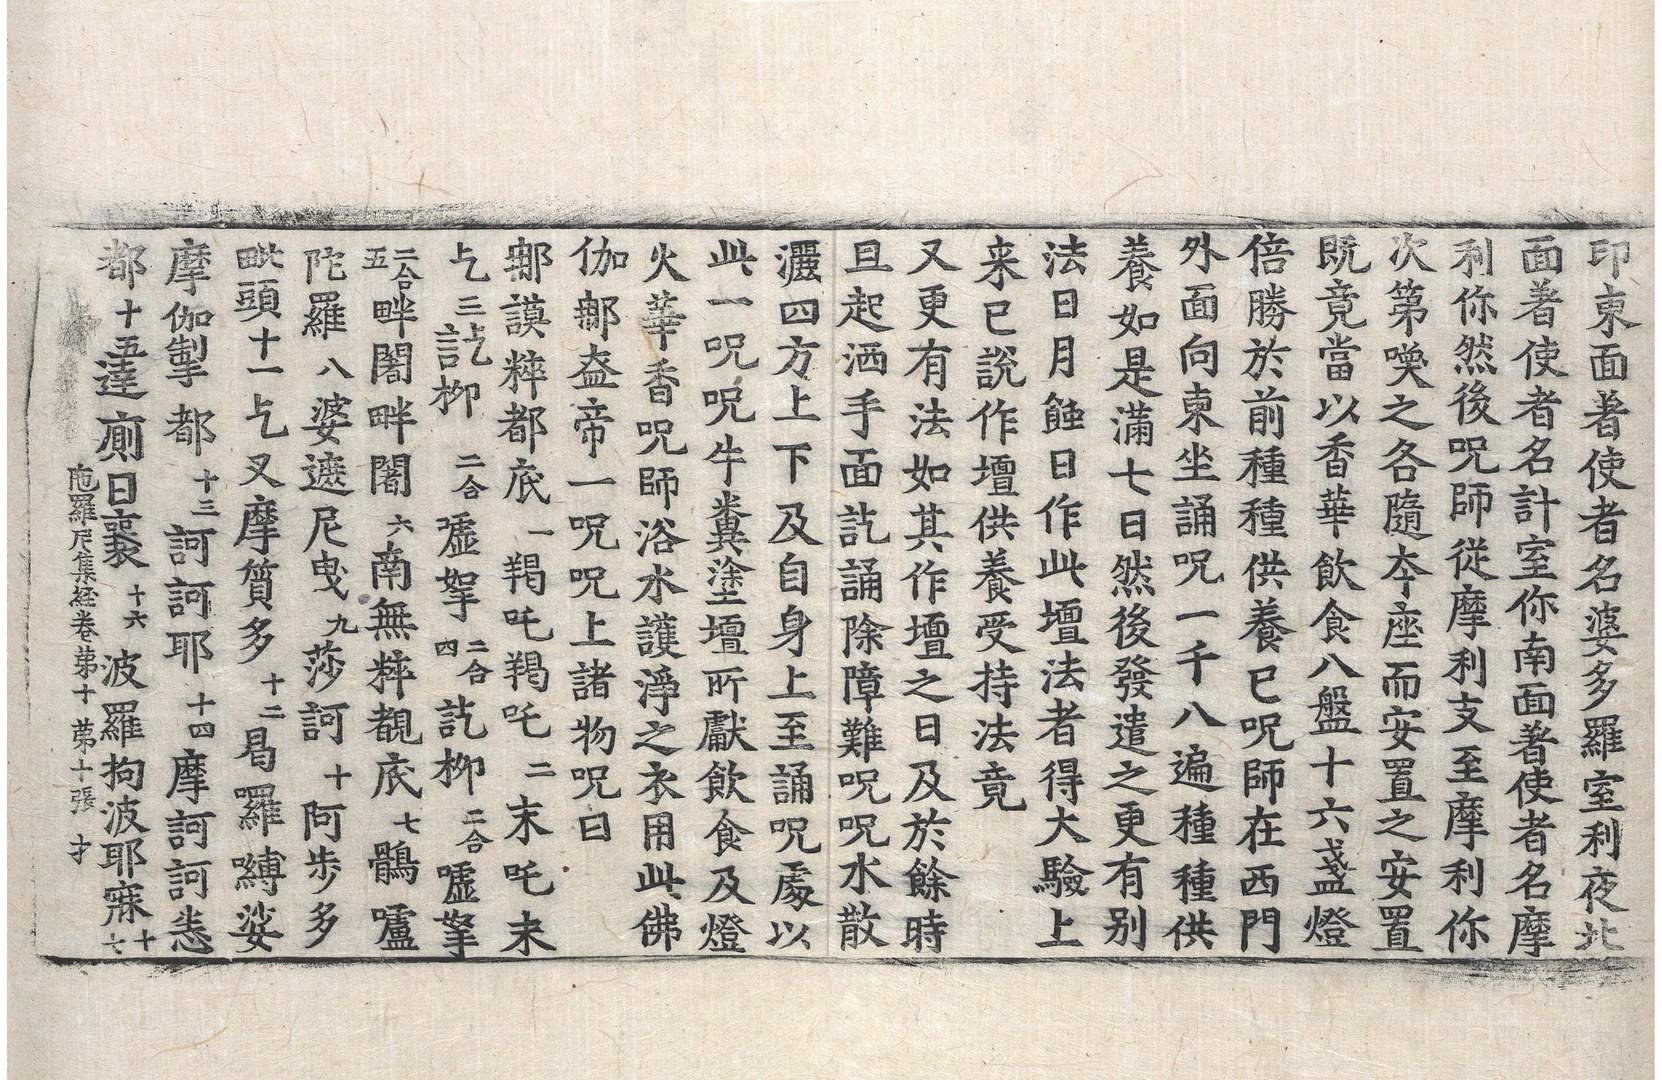 印東面著使者名婆多羅室利夜北
面著使者名計室你南面著使者名摩
利你然後呪師從摩利支至摩利你
次第喚之各隨夲座而安置之安置
既竟當以香華飲食八盤十六盞燈
倍勝於前種種供養已呪師在西門
外面向東坐誦呪一千八遍種種供
養如是滿七日然後發遣之更有別
法日月蝕日作此壇法者得大驗上
来已說作壇供養受持法竟
又更有法如其作壇之日及於餘時
旦起洒手面訖誦除障難呪呪水散
灑四方上下及自身上至誦呪處以
此一呪呪牛糞塗壇所獻飲食及燈
火華香呪師浴水護淨之衣用此佛
伽𨚗盔帝一呪呪上諸物呪曰
𨚗謨粹都底一羯吒羯吒二末吒末
乞三訖栁二合嘘拏四二合訖栁二合嘘拏
五二合畔闍畔闍六南無粹覩底七鶻嚧
陀羅八婆遮尼曳九莎訶十阿步多
毗頭十一乞叉摩質多十二曷羅嚩娑
摩伽掣都十三訶訶耶十四摩訶訶悉
都十五達廁日襄十六波羅拘波耶寐十六
陁羅尼集経卷苐十 苐十張 才